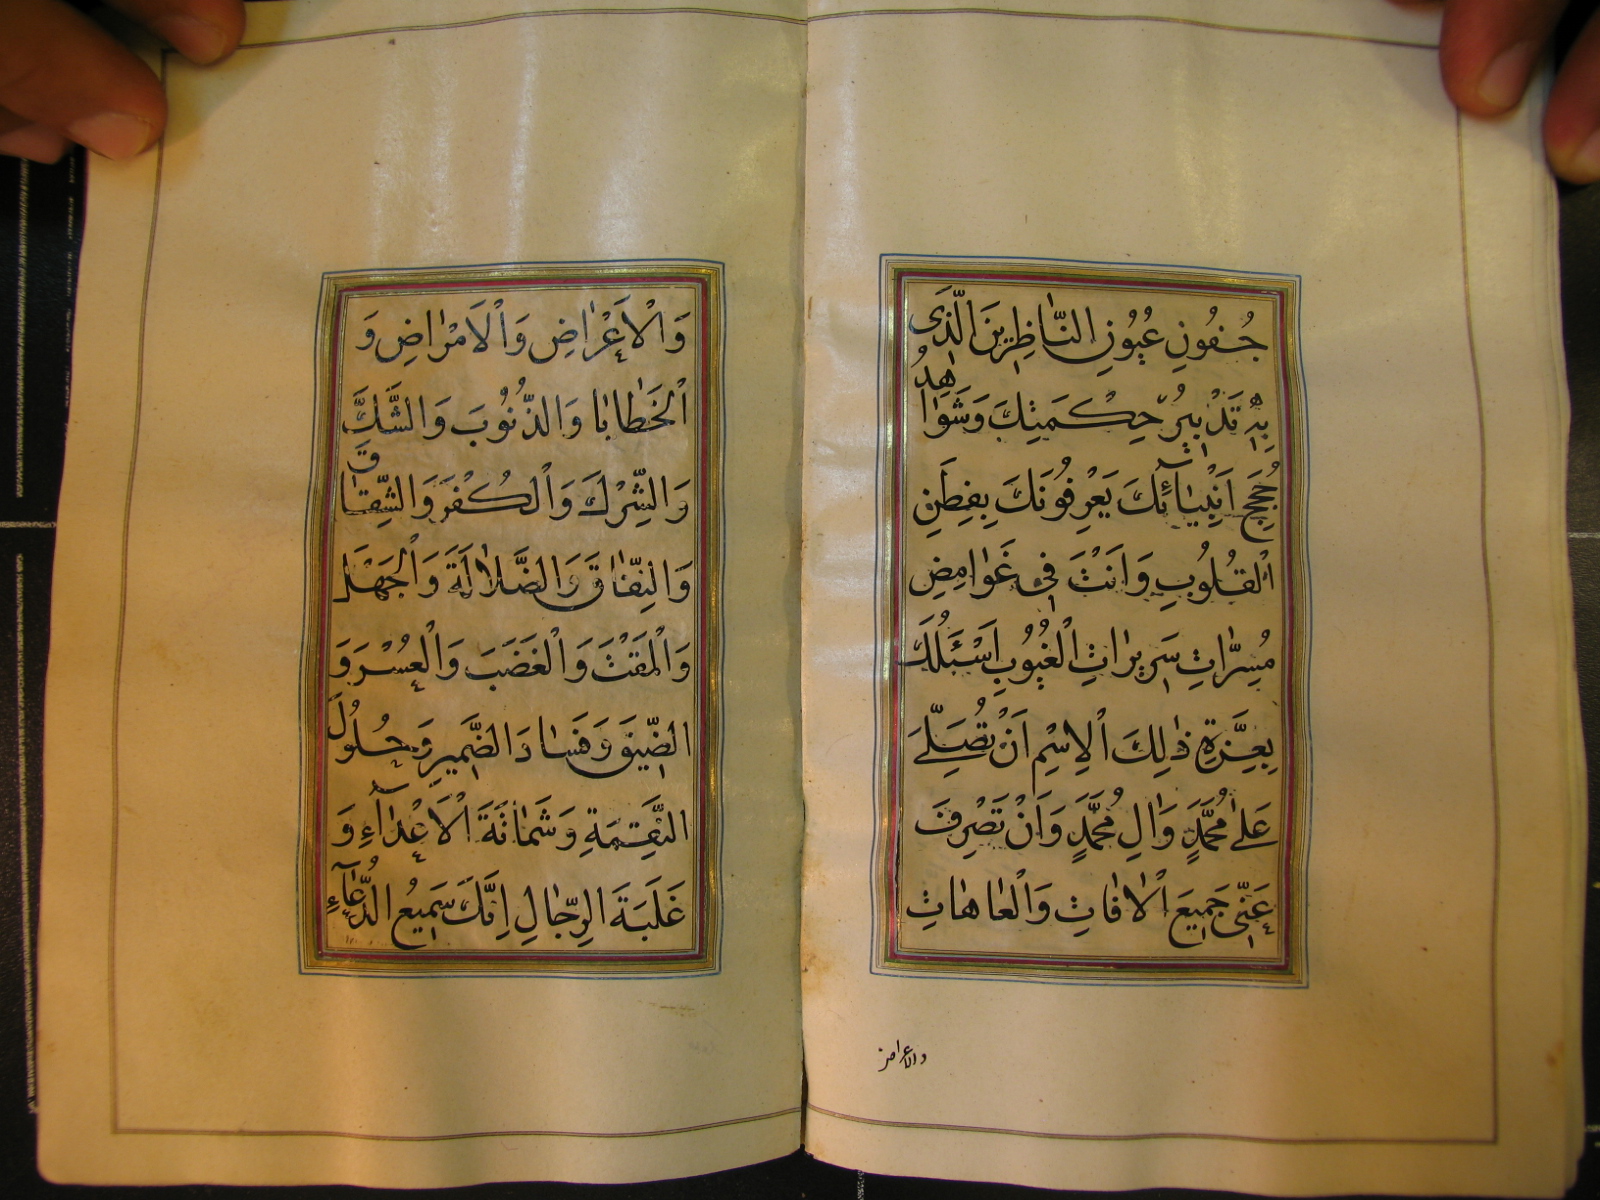 جُفُونِ عُيُونِ النَّاظِرِينَ الَّذَى
بِهِ تَدْبِيرُ حِكْمَتِكَ وَشَوٰاهِدُ
حُجَجِ اَنْبِيٰآئِكَ يَعْرِفُونَكَ بِفِطَنِ
اَلْقُلُوبِ وَاَنْتَ فِى غَوٰامِضِ
مُسِرّٰاتِ سَرِيرٰاتِ الْغُيُوبِ اَسْئَلُكَ
بِعِزَّةِ ذٰلِكَ الْاِسْمِ اَنْ تُصَلِّىَ
عَلٰى مُحَمَّدٍ وَاٰلِ مُحَمَّدٍ وَاَنْ تَصْرِفَ
عَنِّى جَمِيعَ الْاٰفٰاتِ وَالْعٰاهٰاتِ
والاعراض
وَالْاَعْرٰاضِ وَالْاَمْرٰاضِ وَ
الْخَطٰايٰا وَالذُّنُوبَ وَالشَّكَّ
وَالشِّرْكَ وَالْكُفْرَ وَالشِّقٰاقَ
وَالنِّفٰاقَ وَالضَّلاٰلَةَ وَالْجَهْلَ
وَالْمَقْتَ وَالْغَضَبَ وَالْعُسْرَ وَ
الضِّيقَ وَفَسٰادَ الضَّمِيرِ وَحُلُولَ
النَّقِمَةِ وَشَمٰاتَةَ الْاَعْدٰآءِ وَ
غَلَبَةَ الرِّجٰالِ اِنَّكَ سَمِيعُ الدُّعٰآءِ